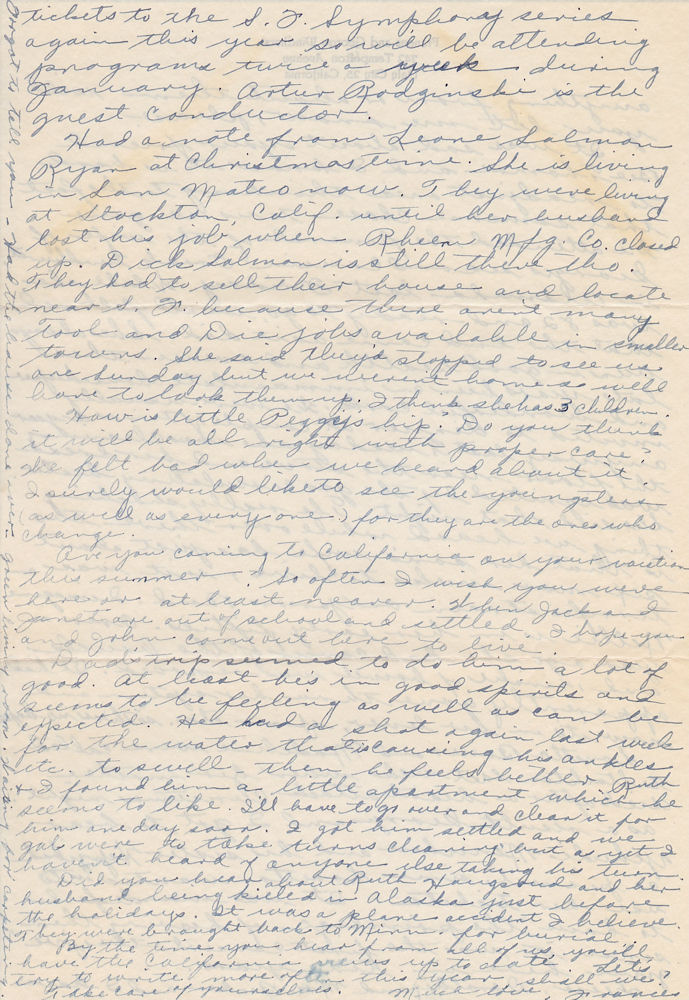 tickets to the S. F. Symphony series
again this year so we'll be attending
programs twice a week during
January. Artur Rodzinski is the
guest conductor.
Had a note from Leone Salmon
Ryan at Christmas time. She is living
in San Mateo now. They were living
at Stockton, Calif. until her husband
lost his job when Rheem Mfg. Co. closed
up. Dick Salmon is still there tho.
They had to sell their house and locate
near S. F. because there aren't many
Tool and Die jobs available in smaller
towns. She said they'd stopped to see us
one Sunday but we weren't home so we'll
have to look them up. I think she has 3 children.
How is little Peggy's hip? Do you think
it will be all right with proper care?
We felt bad when we heard about it.
I surely would like to see the youngsters
(as well as everyone) for they are the ones who
change.
Are you coming to California on your vacation
this summer? So often I wish you were
here or at least nearer. When Jack and
Janet are out of school and settled I hope you
and John come out here to live.
Dad's trip seemed to do him a lot of
good. At least he's in good spirits and
seems to be feeling as well as can be
expected. He had a shot again last week
for the water that is causing his ankles
etc. to swell - then he feels better. Ruth
+ I found him a little apartment which he
seems to like. I'll have to go over and clean it for
him one day soon. I got him settled and we
gals were to take turns cleaning but as yet I
haven't heard of anyone else taking his turn.
Did you hear about Ruth Haugsrud and her
husband being killed in Alaska just before
the holidays. It was a plane accident I believe.
They were brought back to Minn. for burial.
By the time you hear from all of us, you'll
have the California news up to date. Let's
try to write more often this year, shall we?
Take care of yourselves. Much love, Francies
Forgot to tell you - Had the house done over. green living room. Waiting for carpeting